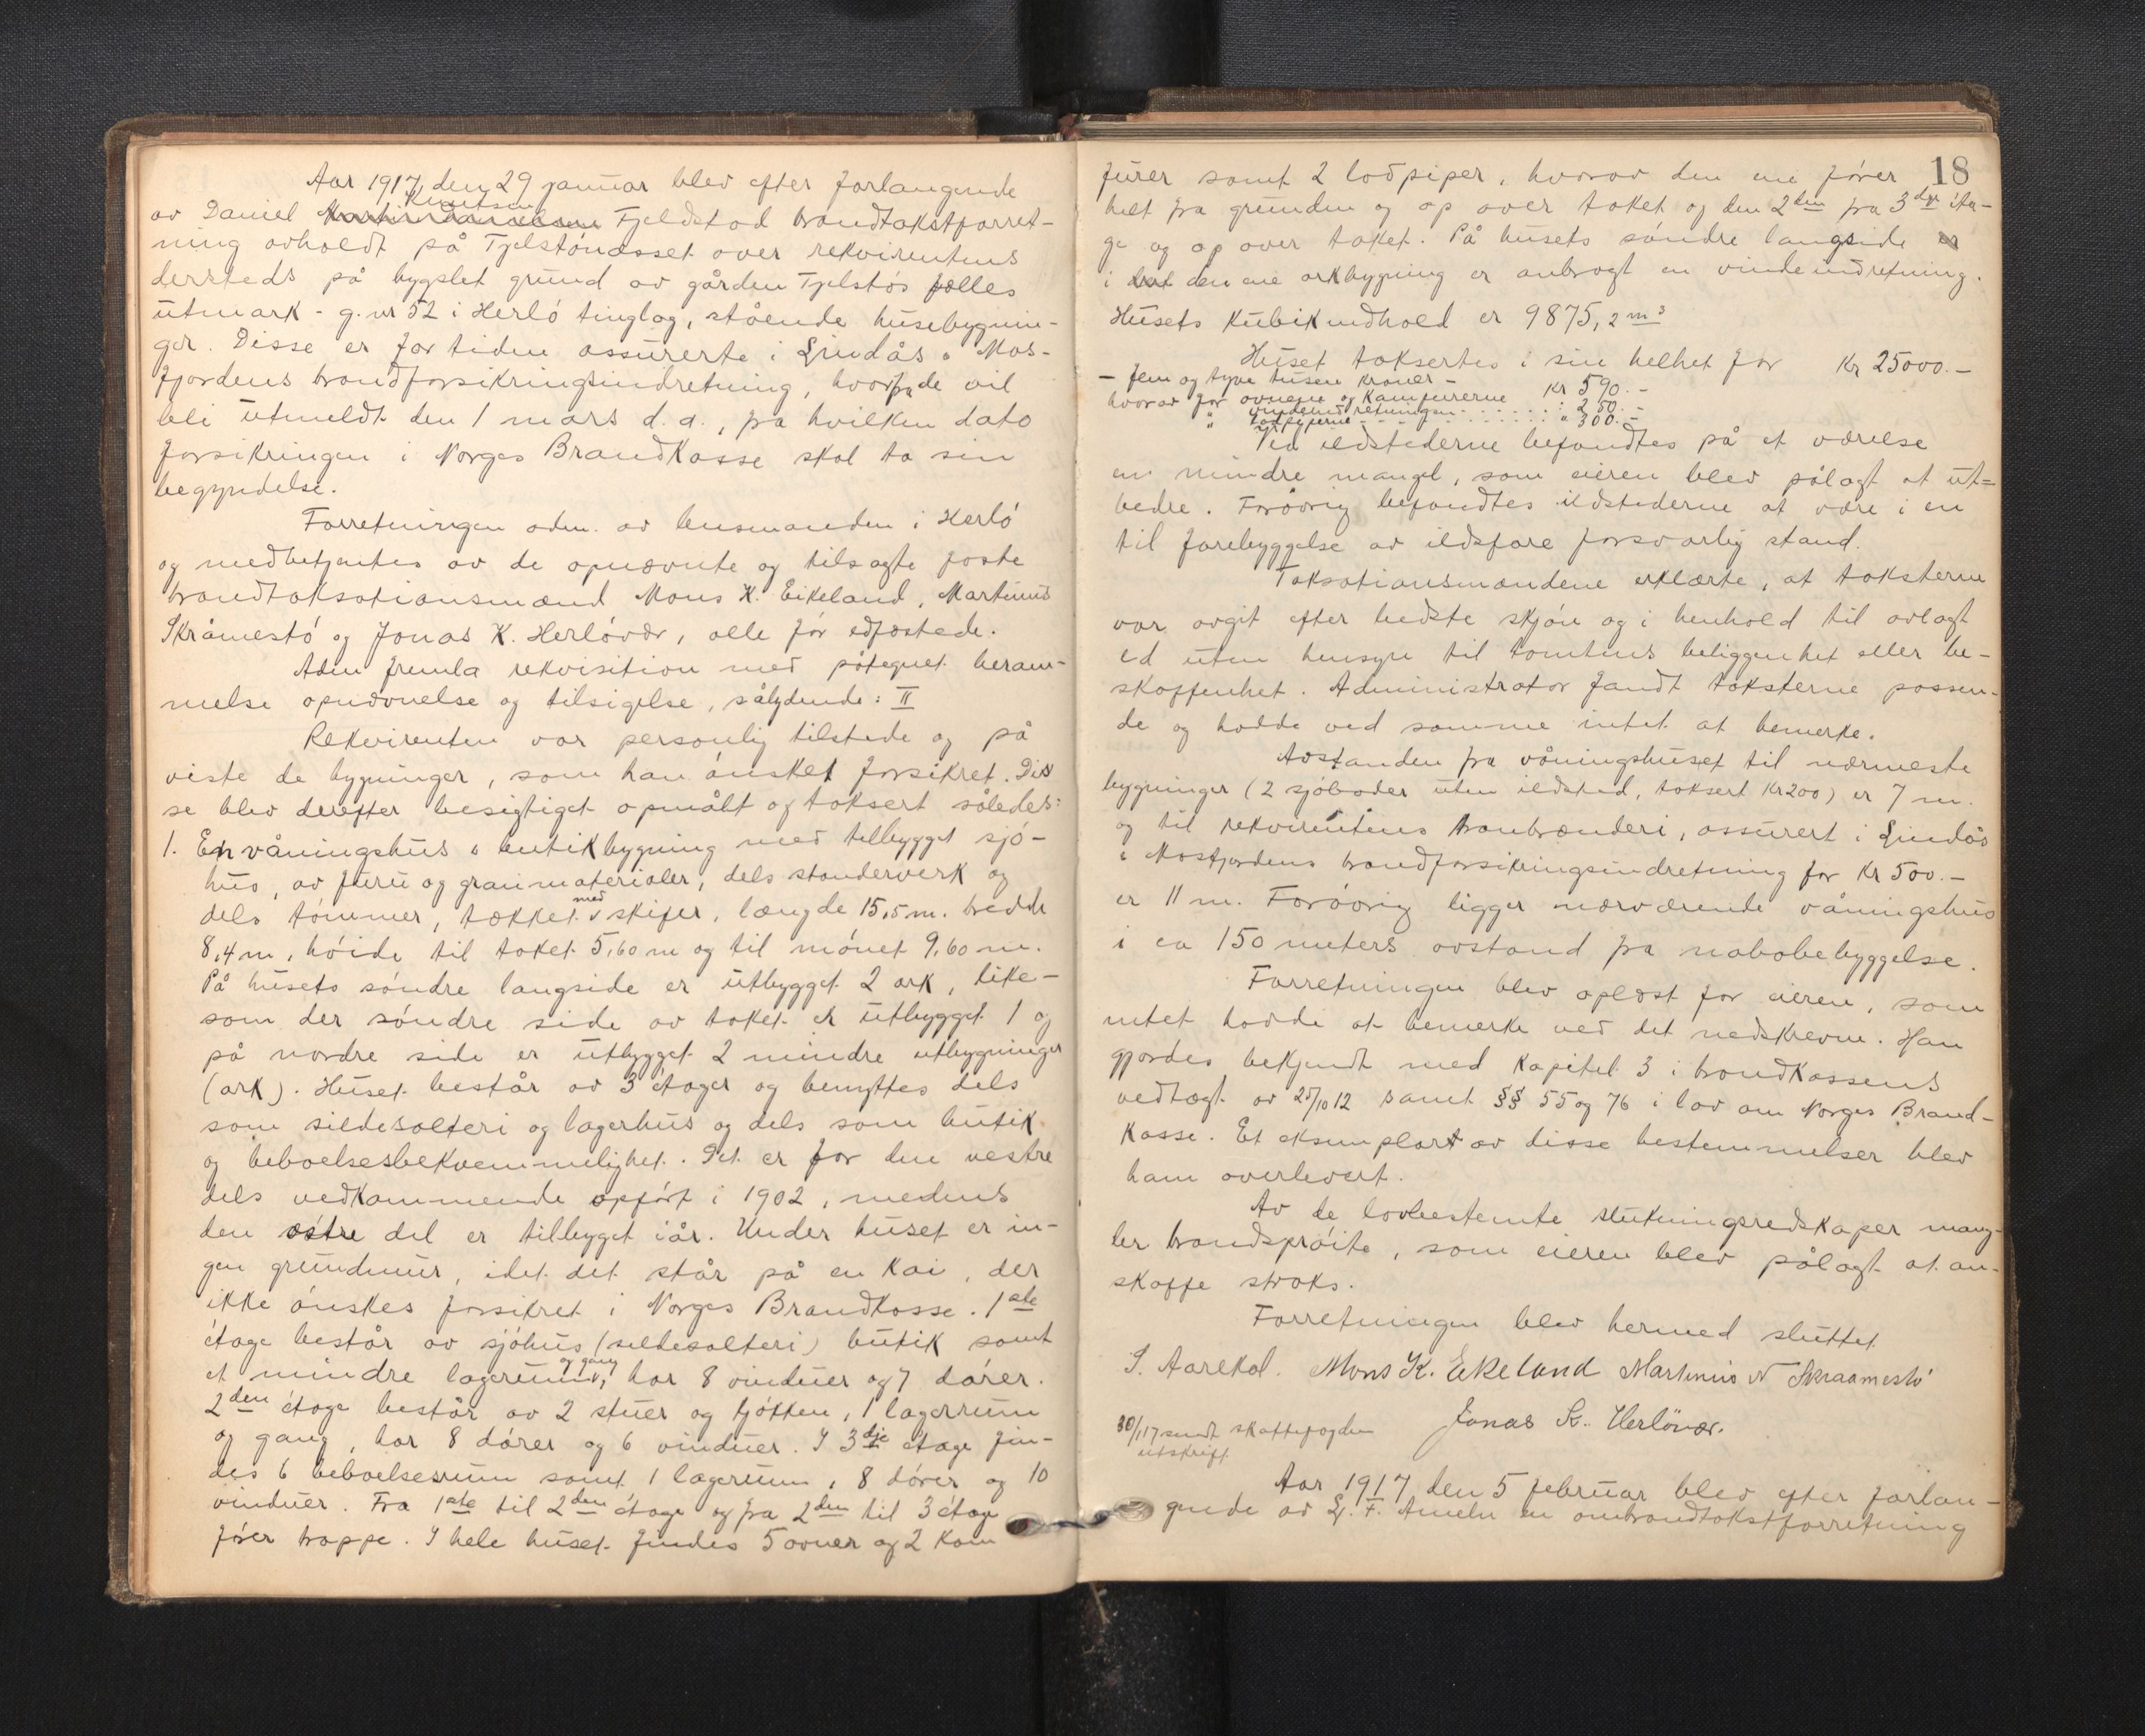 Aar 1917, den 29 januar blev efter forlangende
Knutsen
av Daniel Fjeldstad brandtakstforret-
ning avholdt på Tjelstónæsset over rekvirentens
dersteds på bygslet grund av gården Tjelstós fælles
utmark - g. nr 52 i Herló tinglag, stående husebygnin-
ger. Disse er for tiden assurerte i Lindås & Mas-
fjordens brandforsikringsindretning, hvorfra de vil
bli utmeldt den 1 mars d. a., fra hvilken dato
forsikringen i Norges Brandkasse skal ta sin
begyndelse.
Forretningen adm. av lensmanden i Herló
og medbetjentes av de opnævnte og tilsagte faste
brandtaksationsmænd Mons K. Eikeland, Martinus
Skråmestó og Jonas K. Herlóvær, alle fór edfæstede.
Adm fremla rekvisition med påtegnet beram-
melse opnævnelse og tilsigelse, sålydende: II
Rekvirenten var personlig tilstede og på
viste de bygninger, som han ónsket forsikret. Dis
se blev derefter besigtiget opmålt og taksert således:
1. En våningshus & butikbygning med tilbygget sjó-
hus, av furu og granmaterialer, dels standerverk og
dels tómmer, tækket med skifer, længde 15,5 m. bredde
8,4 m, hóide til taket 5,60 m og til mónet 9,60 m.
På husets sóndre langside er utbygget 2 ark, like-
som der sóndre side av taket er utbygget 1 og
på nordre side er utbygget 2 mindre utbygninger
(ark). Huset består av 3 étager og benyttes dels
som sildesalteri og lagerhus og dels som butik
og beboelsesbekvemmelighet. Det er for den vestre
dels vedkommende opfórt i 1902, medens
den óstre del er tilbygget iår. Under huset er in-
gen grundmur, idet det står på en kai, der
ikke ónskes forsikret i Norges Brandkasse. 1ste
étage består av sjóhus (sildesalteri) butik samt
et mindre lagerrum og gang, har 8 vinduer og 7 dórer.
2den étage består av 2 stuer og kjókken, 1 lagerrum
og gang, har 8 dórer og 6 vinduer. I 3dje étage fin-
des 6 beboelsesrum samt 1 lagerrum, 8 dórer og 10
vinduer. Fra 1ste til 2den étage og fra 2den til 3 étage
fórer trappe. I hele huset findes 5 ovner og 2 kam
18
furer samt 2 lodpiper, hvorav den ene fórer
helt fra grunden og op over taket og den 2den fra 3dje éta-
ge og op over taket. På husets sóndre langside er
i den ene arkbygning er anbragt en vindeindretning.
Husets kubikindhold er 9875,2 m3
Huset taksertes i sin helhet for Kr 25000.-
- fem og tyve tusen kroner -
hvorav for ovnene og kamfurerne Kr 590.-
" vindeindretningen " 250.-
" lodpiperne " 300.-
Ved ildstederne befandtes på et værelse
en mindre mangel, som eieren blev pålagt at ut-
bedre. Forøvrig befandtes ildstederne at være i en
til forebyggelse av ildsfare forsvarlig stand.
Taksationsmændene erklærte, at taksterne
var avgit efter bedste skjón og i henhold til avlagt
ed uten hensyn til tomtens beliggenhet eller be-
skaffenhet. Administrator fandt taksterne passen-
de og hadde ved samme intet at bemerke.
Avstanden fra våningshuset til nærmeste
bygninger (2 sjóboder uten ildsted, taksert kr 200) er 7 m.
og til rekvirentens tranbrænderi, assurert i Lindås
& Masfjordens brandforsikringsindretning for kr 500.-
er 11 m. Forøvrig ligger nærværende våningshus
i ca 150 meters avstand fra nabobebyggelse.
Forretningen blev oplæst for eieren, som
intet hadde at bemerke ved det nedskrevne. Han
gjordes bekjendt med kapitel 3 i brandkassens
vedtægt av 25/10 12 samt §§ 55 og 76 i lov om Norges Brand-
kasse. Et eksemplar av disse bestemmelser blev
ham overlevert.
Av de lovbestemte slukningsredskaper mang-
ler brandspróite, som eieren blev pålagt at an-
skaffe straks.
Forretningen blev hermed sluttet
S. Aarekol. Mons K. Eikeland Martinus N Skraamestó
Jonas K. Herlövær.
30/1 17 sendt skattefogden
utskrift
Aar 1917 den 5 februar blev efter forlan-
gende av L. F. Ameln en ombrandtakstforretning